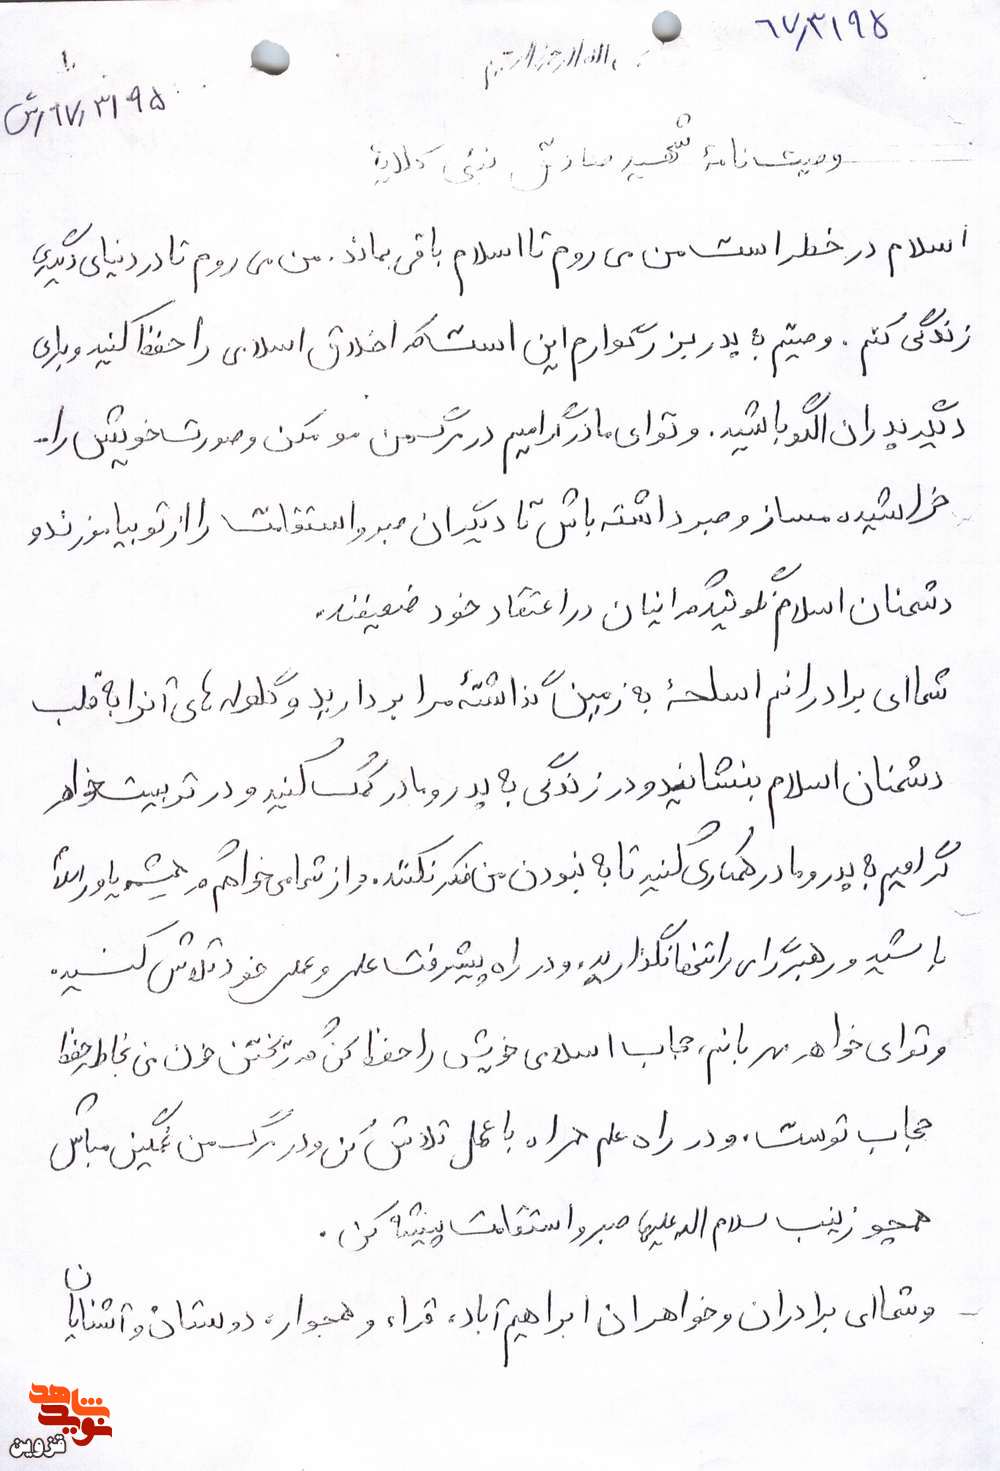 ۶۷٫۳۱۹۵
۶۷٫۳۱۹۵٫ش
الله الرحمن الرحیم
وصیت نامهٔ شهید صادق نبئی کلایهٔ
اسلام در خطر است من می روم تا اسلام باقی بماند. من می روم تا در دنیای دیگری
زندگی کنم. وصیتم به پدر بزرگوارم این است که اخلاق اسلامی را حفظ کنید و برای
دیگر پدران الگو باشید. و تو ای مادر گرامیم در مرگ من مو مکن و صورت خویش را
خراشیده مساز و صبر داشته باش تا دیگران صبر و استقامت را از تو بیاموزند و
دشمنان اسلام نگویند که ایرانیان در اعتقاد خود ضعیفند.
شما ای برادرانم اسلحهٔ به زمین گذاشتهٔ مرا بردارید و گلوله های آنرا به قلب
دشمنان اسلام بنشانید و در زندگی به پدر و مادر کمک کنید و در تربیت خواهر
گرامیم به پدر و مادر همکاری کنید تا به نبودن من فکر نکنند. و از شما می خواهم که همیشه یاور
باشید و رهبر را تنها نگذارید، و در راه پیشرفت علمی و عملی خود تلاش کنید.
و تو ای خواهر مهربانم، حجاب اسلامی خویش را حفظ کن که ریختن خون من بخاطر حفظ
حجاب توست، و در راه علم همراه با عمل تلاش کن و در مرگ من غمگین مباش
همچو زینب سلام الله علیها صبر و استقامت پیشه کن.
و شما ای برادران و خواهران ابراهیم آباد، قراء و همجوار، دوستان و آشنایان
نوید شاهد
قزوین